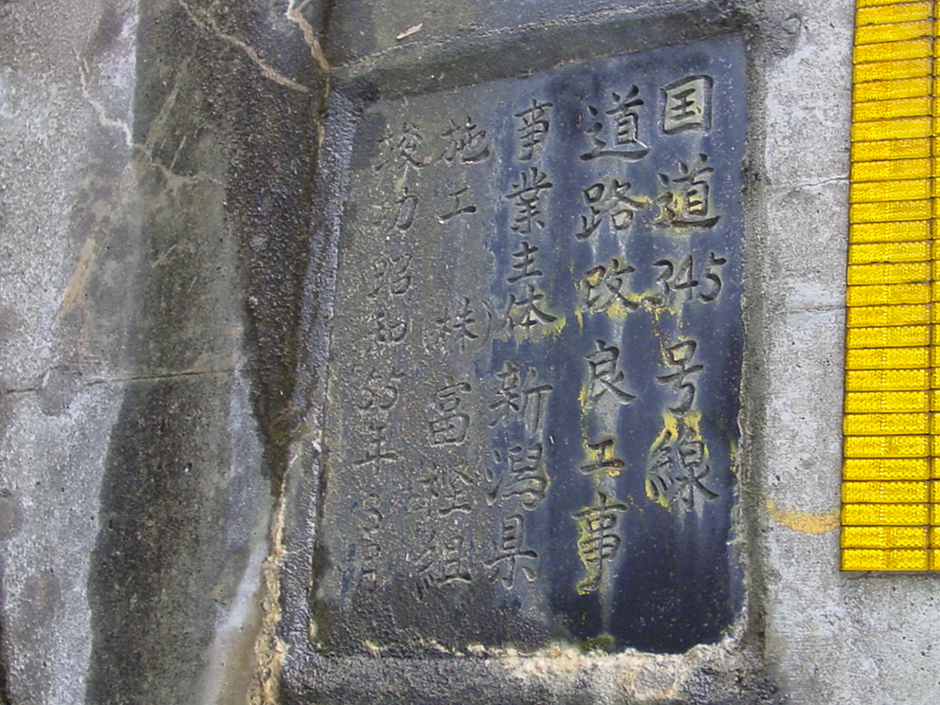 国道345号線
道路改良工事
事業主体 新潟県
施工 (株) 富樫組
竣功 昭和55年3月